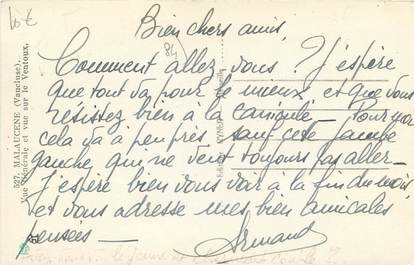 10 €
Bien chers amis,
(84)
Comment allez-vous ? J'espère
que tout va pour le mieux, et que vous
résistez bien à la canicule — Pour moi
cela va à peu près sauf cette jambe
gauche, qui ne veut toujours pas aller —
J'espère bien vous voir à la fin du mois
et vous adresse mes bien amicales
pensées —
Armand
527. MALAUCENE (Vaucluse).
Vue générale et vue sur le Ventoux.